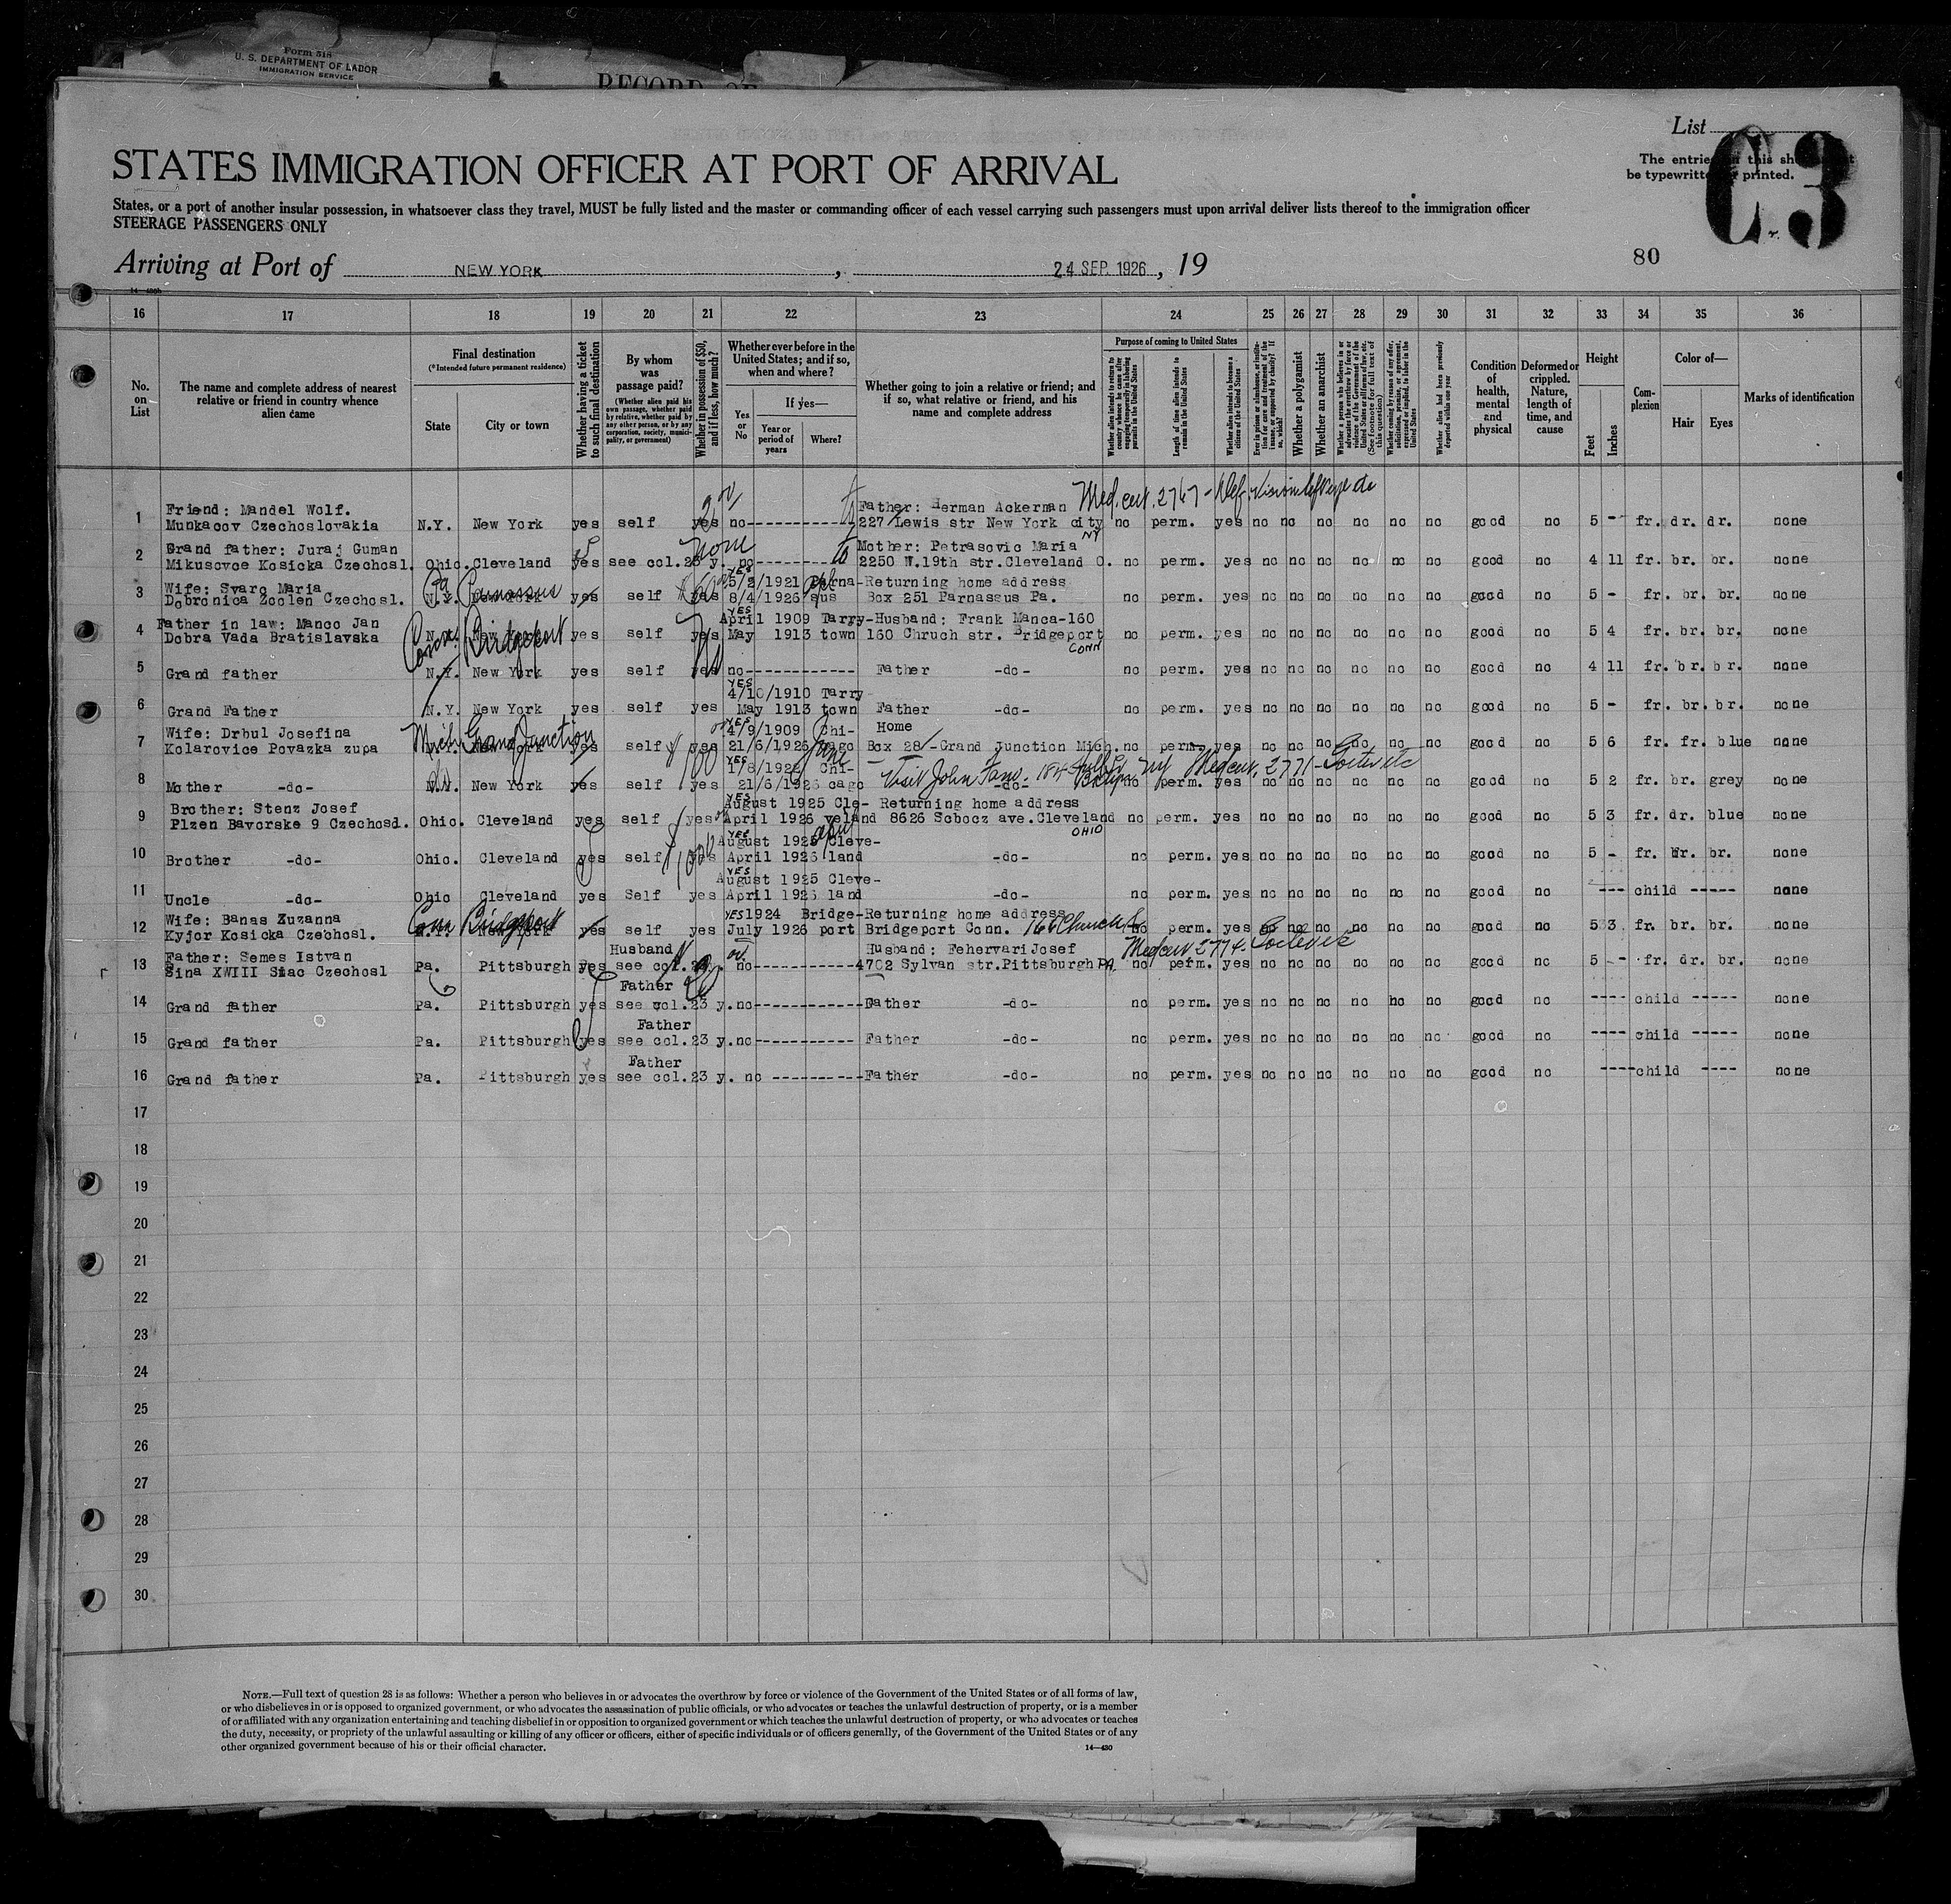 Form 518
U. S. DEPARTMENT OF LABOR
IMMIGRATION SERVICE
RECORD OF
List
C3
The entries on this sheet must
be typewritten or printed.
STATES IMMIGRATION OFFICER AT PORT OF ARRIVAL
States, or a port of another insular possession, in whatsoever class they travel, MUST be fully listed and the master or commanding officer of each vessel carrying such passengers must upon arrival deliver lists thereof to the immigration officer
STEERAGE PASSENGERS ONLY
Arriving at Port of NEW YORK , 24 SEP. 1926 , 19
80
16 17 18 19 20 21 22 23 24 25 26 27 28 29 30 31 32 33 34 35 36
No. on List
The name and complete address of nearest relative or friend in country whence alien came
Final destination
(*Intended future permanent residence)
State
City or town
Whether having a ticket to such final destination
By whom was passage paid?
(Whether alien paid his own passage, whether paid by relative, whether paid by any other person, or by any corporation, society, municipality, or government)
Whether in possession of $50, and if less, how much?
Whether ever before in the United States; and if so, when and where?
Yes or No
If yes—
Year or period of years
Where?
Whether going to join a relative or friend; and if so, what relative or friend, and his name and complete address
Purpose of coming to United States
Length of time alien intends to remain in the United States
Whether alien intends to become a citizen of the United States
Whether a polygamist
Whether an anarchist
Whether alien had been previously deported within one year
Condition of health, mental and physical
Deformed or crippled. Nature, length of time, and cause
Height
Feet
Inches
Complexion
Color of—
Hair
Eyes
Marks of identification
Med. cert. 2767 -
Friend: Mandel Wolf. Father: Herman Ackerman
1 Munkacov Czechoslovakia N.Y. New York yes self yes no 227 Lewis str New York city NY no perm. yes no no no no no no good no 5 - fr. dr. dr. none
none
Grand father: Juraj Guman Mother: Petrasovic Maria
2 Mikusovce Kosicka Czechosl. Ohio. Cleveland yes see col. 23 y. no 2250 W.19th str.Cleveland O. no perm. yes no no no no no no good no 4 11 fr. br. br. none
Wife: Svarc Maria YES 5/2/1921 Parna- Returning home address
Pa Parnassus
3 Dobronica Zcolen Czechosl. N.Y. New York yes self yes 8/4/1926 sus Box 251 Parnassus Pa. no perm. yes no no no no no no good no 5 - fr. br. br. none
Father in law: Manco Jan YES April 1909 Tarry- Husband: Frank Manca-160
Conn. Bridgeport
4 Dobra Vada Bratislavska N.Y. New York yes self yes May 1913 town 160 Chruch str. Bridgeport CONN no perm. yes no no no no no no good no 5 4 fr. br. br. none
5 Grand father N.Y. New York yes self yes no Father -do- no perm. yes no no no no no no good no 4 11 fr. br. br. none
YES 4/10/1910 Tarry
6 Grand Father N.Y. New York yes self yes May 1913 town Father -do- no perm. yes no no no no no no good no 5 - fr. br. br. none
Wife: Drbul Josefina YES 4/9/1909 Chi- Home
Mich. Grand Junction
7 Kolarovice Povazka zupa New York yes self yes 21/6/1926 cago Box 28 -Grand Junction Mich. no perm. yes no no no no no no good no 5 6 fr. fr. blue none
YES 1/8/1922 Chi- Visit John Med cert. 2771 -
8 Mother -do- N.Y. New York yes self yes 21/6/1926 cago -do- no perm. yes no no no no no no good no 5 2 fr. br. grey none
Brother: Stenz Josef YES August 1925 Cle- Returning home address
9 Plzen Bavorske 9 Czechosl. Ohio. Cleveland yes self yes April 1926 veland 8626 Sobocz ave.Cleveland OHIO no perm. yes no no no no no no good no 5 3 fr. dr. blue none
YES August 1925 Cleve-
10 Brother -do- Ohio. Cleveland yes self yes April 1926 land -do- no perm. yes no no no no no no good no 5 - fr. br. br. none
YES August 1925 Cleve-
11 Uncle -do- Ohio Cleveland yes Self yes April 1926 land -do- no perm. yes no no no no no no good no --- child ----- none
Wife: Banas Zuzanna YES 1924 Bridge- Returning home address
Conn Bridgeport
12 Kyjor Kosicka Czechosl. N.Y. New York yes self yes July 1926 port Bridgeport Conn. 166 Church no perm. yes no no no no no no good no 5 3 fr. br. br. none
Father: Semes Istvan Husband Husband: Fehervari Josef Med cert 2774.
13 Sina XWIII Siac Czechosl Pa. Pittsburgh yes see col. 23 y. no 4702 Sylvan str.Pittsburgh PA. no perm. yes no no no no no no good no 5 - fr. dr. br. none
Father
14 Grand father Pa. Pittsburgh yes see col.23 y. no Father -do- no perm. yes no no no no no no good no ---- child ----- none
Father
15 Grand father Pa. Pittsburgh yes see col.23 y. no Father -do- no perm. yes no no no no no no good no ---- child ----- none
Father
16 Grand father Pa. Pittsburgh yes see col.23 y. no Father -do- no perm. yes no no no no no no good no ---- child ---- none
17
18
19
20
21
22
23
24
25
26
27
28
29
30
NOTE.—Full text of question 28 is as follows: Whether a person who believes in or advocates the overthrow by force or violence of the Government of the United States or of all forms of law,
or who disbelieves in or is opposed to organized government, or who advocates the assassination of public officials, or who advocates or teaches the unlawful destruction of property, or is a member
of or affiliated with any organization entertaining and teaching disbelief in or opposition to organized government or which teaches the unlawful destruction of property, or who advocates or teaches
the duty, necessity, or propriety of the unlawful assaulting or killing of any officer or officers, either of specific individuals or of officers generally, of the Government of the United States or of any
other organized government because of his or their official character.
14—430